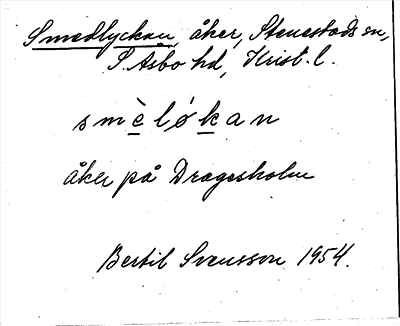 Smedlyckan, åker, Stenestads sn,
S. Åsbo hd, Krist. l.
smèløkan
åker på Dragesholm
Bertil Svensson 1954.